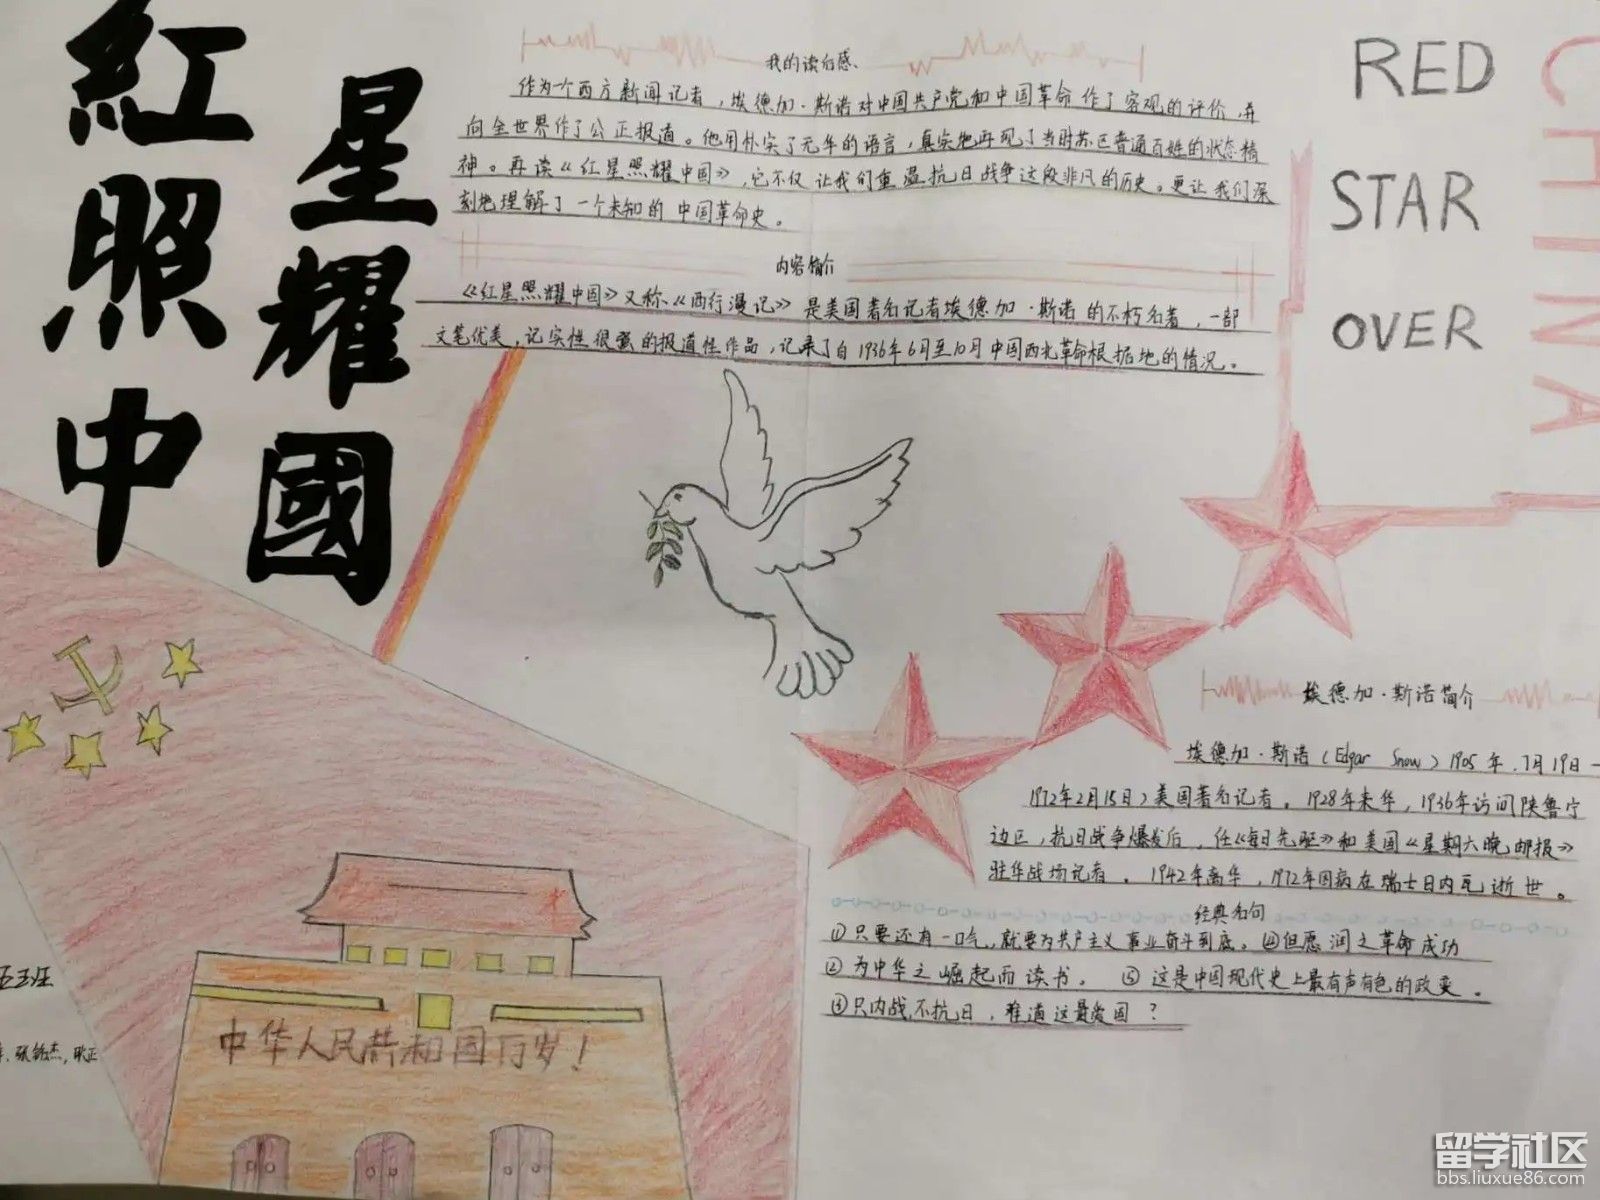 红星照耀中國
RED
STAR
OVER
CHINA
我的读后感
作为一个西方新闻记者，埃德加·斯诺对中国共产党和中国革命作了客观的评价，并
向全世界作了公正报道。他用朴实了无华的语言，真实地再现了当时苏区普通百姓的状态精
神。再读《红星照耀中国》，它不仅让我们重温抗日战争这段非凡的历史。更让我们深
刻地理解了一个未知的中国革命史。
内容简介
《红星照耀中国》又称《西行漫记》是美国著名记者埃德加·斯诺的不朽名著，一部
文笔优美，记实性很强的报道性作品，记录了自1936年6月至10月中国西北革命根据地的情况。
埃德加·斯诺简介
埃德加·斯诺（Edgar Snow）1905年.7月19日—
1972年2月15日）美国著名记者。1928年来华，1936年访问陕鲁宁
边区，抗日战争爆发后，任《每日先驱》和美国《星期六晚邮报》
驻华战场记者。1942年离华，1972年因病在瑞士日内瓦逝世。
经典名句
①只要还有一口气，就要为共产主义事业奋斗到底。④但愿润之革命成功
②为中华之崛起而读书。⑤这是中国现代史上最有声有色的政变。
③只内战，不抗日，难道这最爱国？
中华人民共和国万岁！
五班
张铭杰，耿正
留学社区
bbs.liuxue86.com